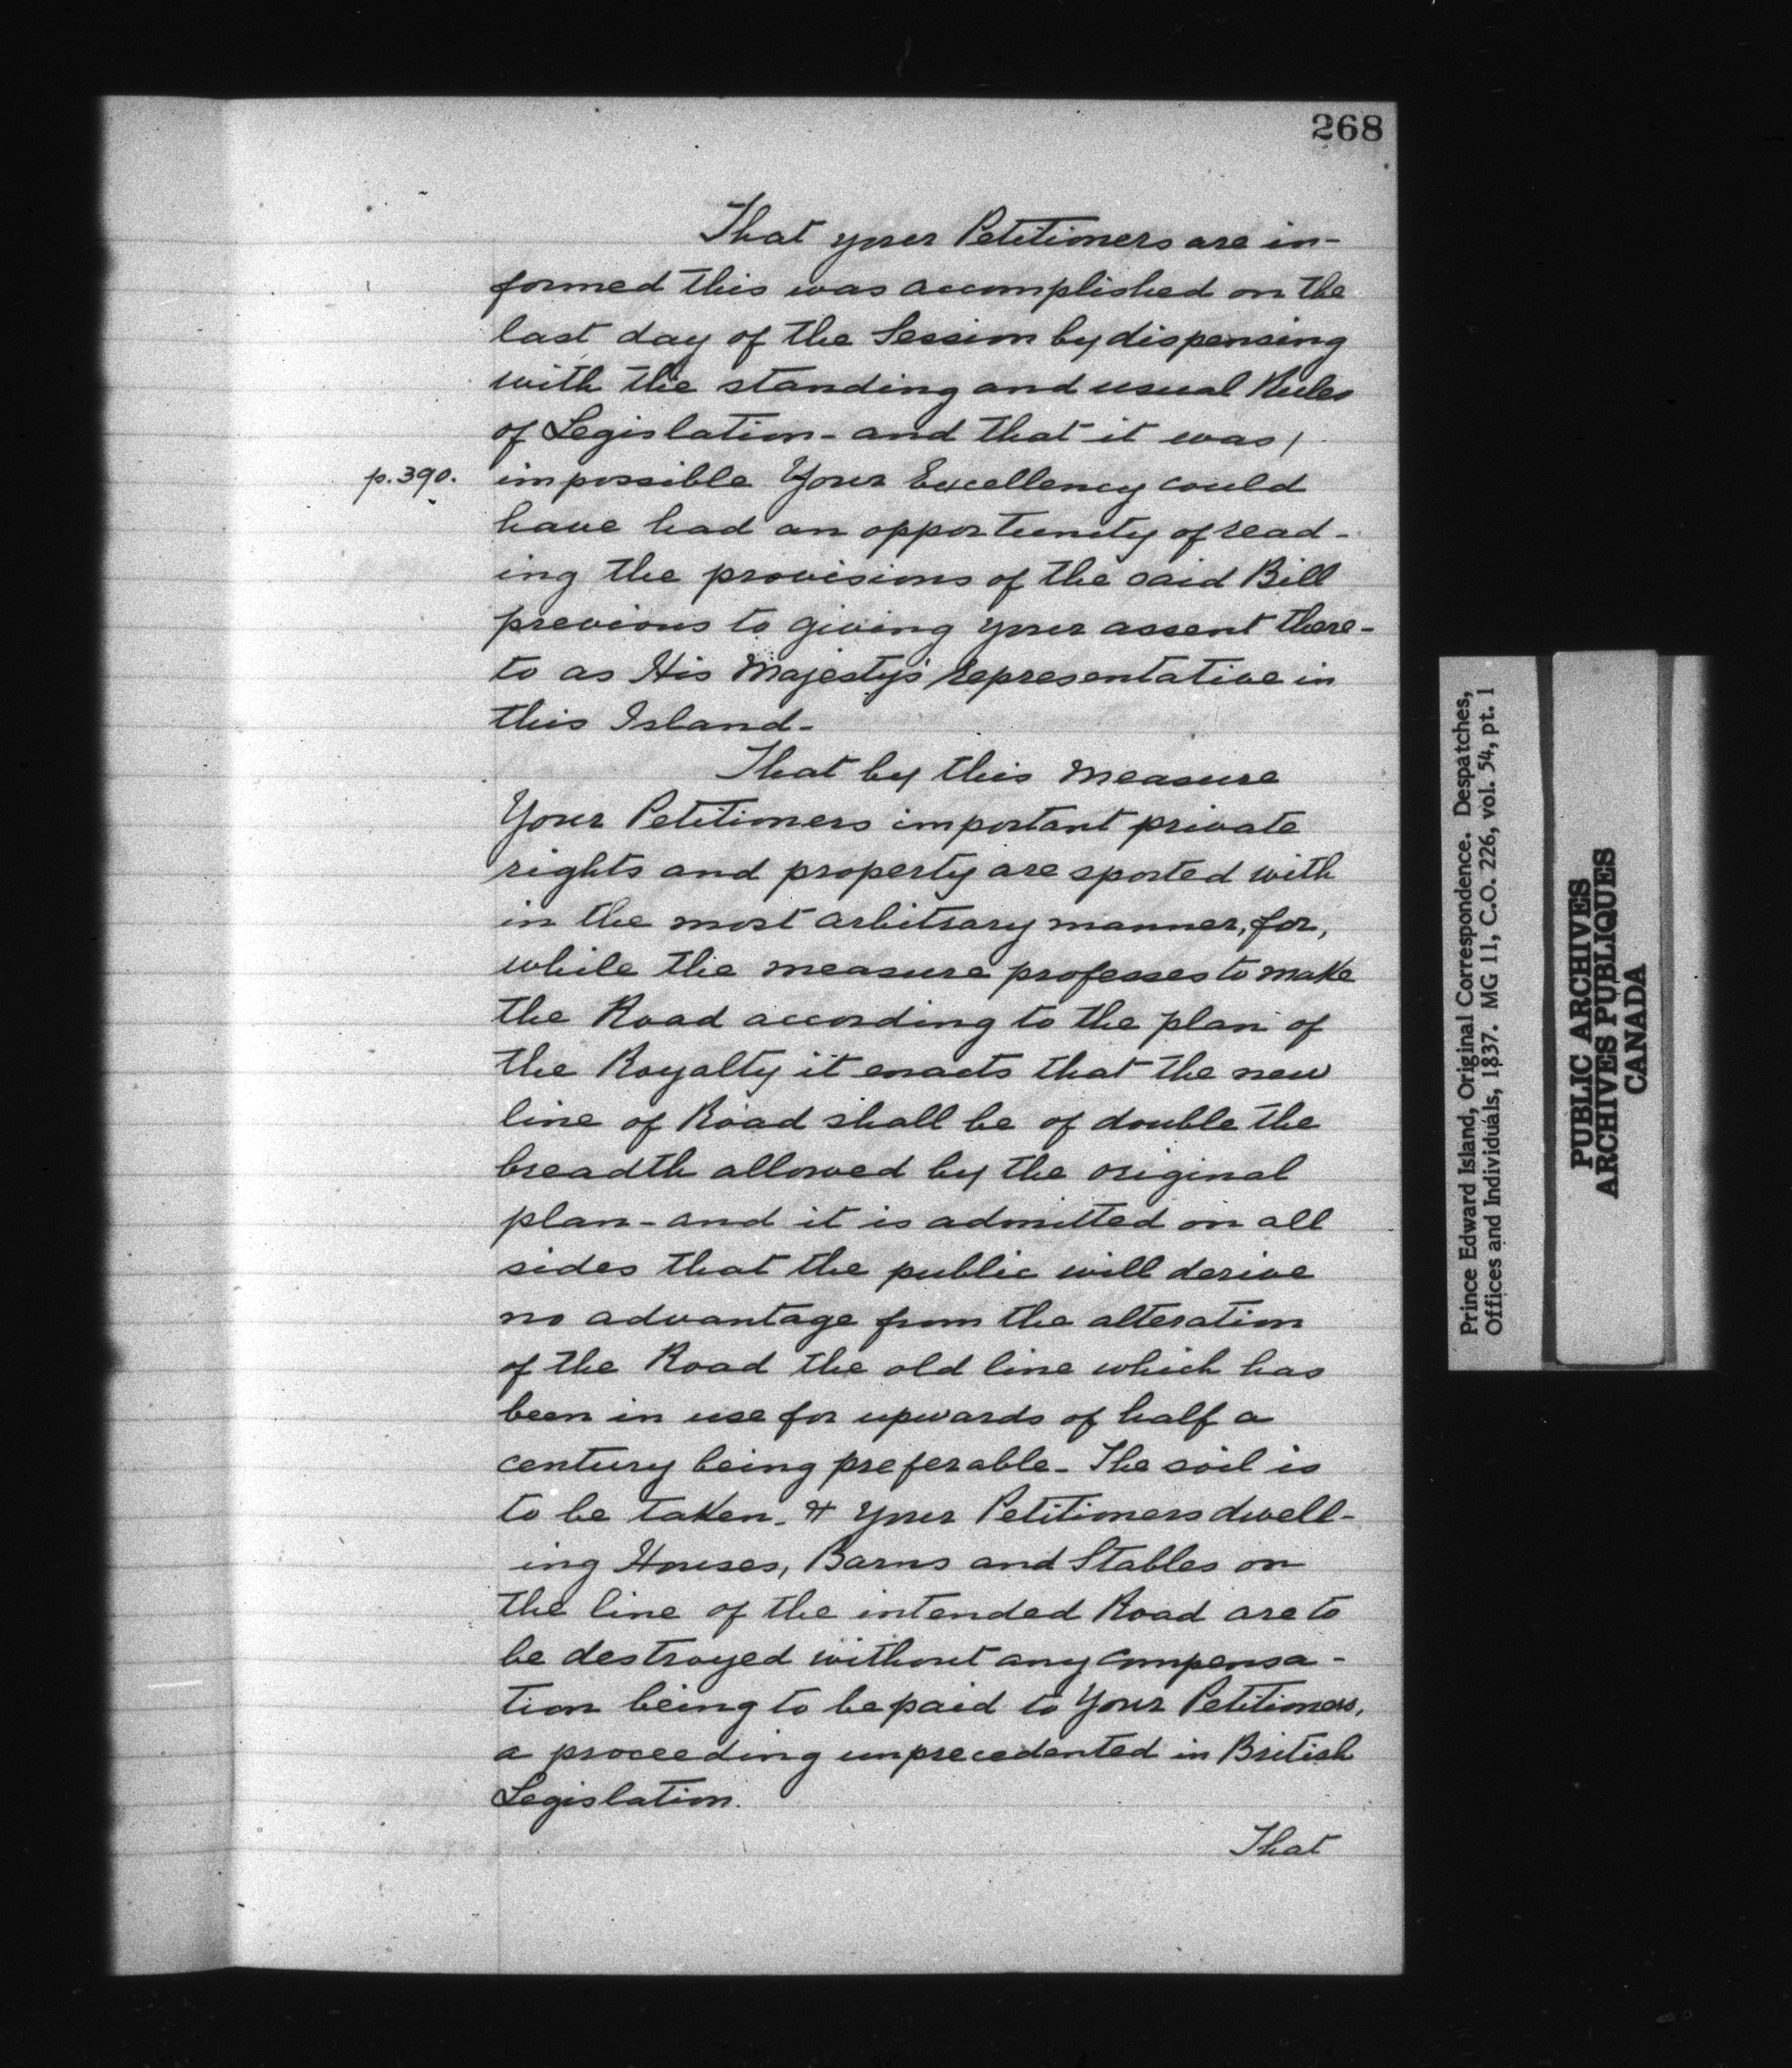 268
That your Petitioners are in-
formed this was accomplished on the
last day of the Session by dispensing
with the standing and usual Rules
of Legislation - and that it was /
p. 390. impossible Your Excellency could
have had an opportunity of read-
ing the provisions of the said Bill
previous to giving your assent there-
to as His Majesty's representative in
this Island -
That by this measure
Your Petitioners important private
rights and property are sported with
in the most arbitrary manner, for,
while the measure professes to make
the Road according to the plan of
the Royalty it enacts that the new
line of Road shall be of double the
breadth allowed by the original
plan - and it is admitted on all
sides that the public will derive
no advantage from the alteration
of the Road the old line which has
been in use for upwards of half a
century being preferable - The soil is
to be taken - & your Petitioners dwell-
ing Houses, Barns and Stables on
the line of the intended Road are to
be destroyed without any compensa-
tion being to be paid to Your Petitioners,
a proceeding unprecedented in British
Legislation.
That
Prince Edward Island, Original Correspondence. Despatches,
Offices and Individuals, 1837. MG 11, C.O. 226, vol. 54, pt. 1
PUBLIC ARCHIVES
ARCHIVES PUBLIQUES
CANADA